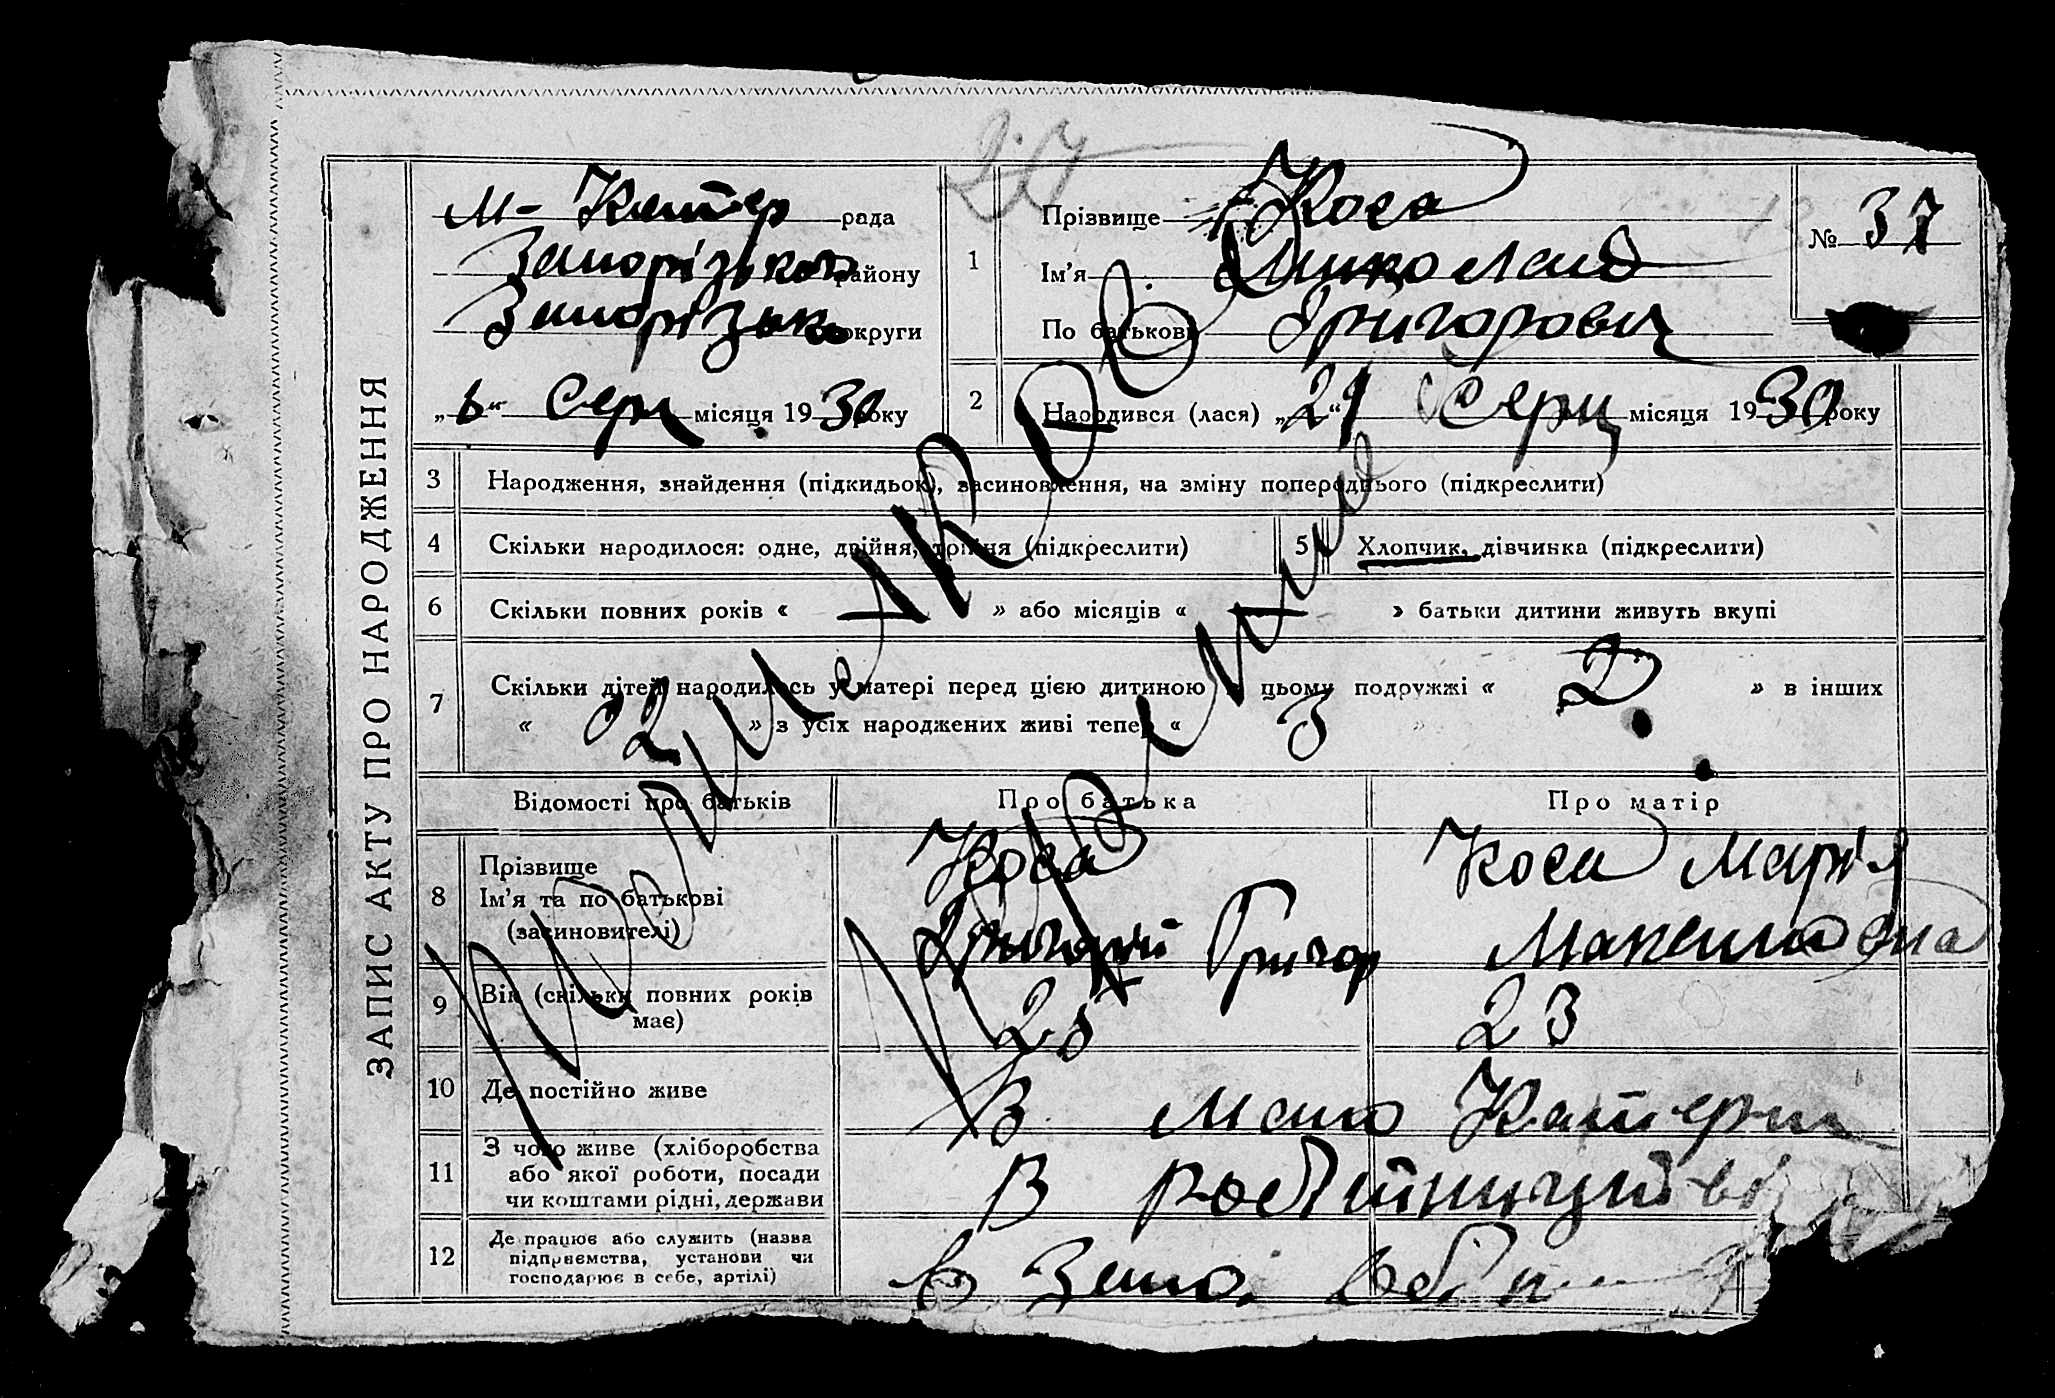 ЗАПИС АКТУ ПРО НАРОДЖЕННЯ
М- Катер рада
Запорізько району
Запорізько округи
„6“ Серп місяця 1930 року
1
Прізвище Коса
Ім’я Миколай
По батькові Григорович
№ 37
2
Народився (лася) „21“ Серп місяця 1930 року
3 Народження, знайдення (підкидьок), засиновлення, на зміну попереднього (підкреслити)
4 Скільки народилося: одне, двійня, трійня (підкреслити)
5 Хлопчик, дівчинка (підкреслити)
6 Скільки повних років « » або місяців « » батьки дитини живуть вкупі
7 Скільки дітей народилось у матері перед цією дитиною в цьому подружжі « 2 » в інших
« 2 » з усіх народжених живі тепер « 3 »
Відомості про батьків Про батька Про матір
8 Прізвище
Ім’я та по батькові
(засиновителі)
Коса
Григорій Григор
Коса Марія
Максимовна
9 Вік (скільки повних років
має)
25
23
10 Де постійно живе
В мало Катерин
11 З чого живе (хліборобства
або якої роботи, посади
чи коштами рідні, держави
В робітництві
12 Де працює або служить (назва
підприємства, установи чи
господарює в себе, артілі)
в Запо.